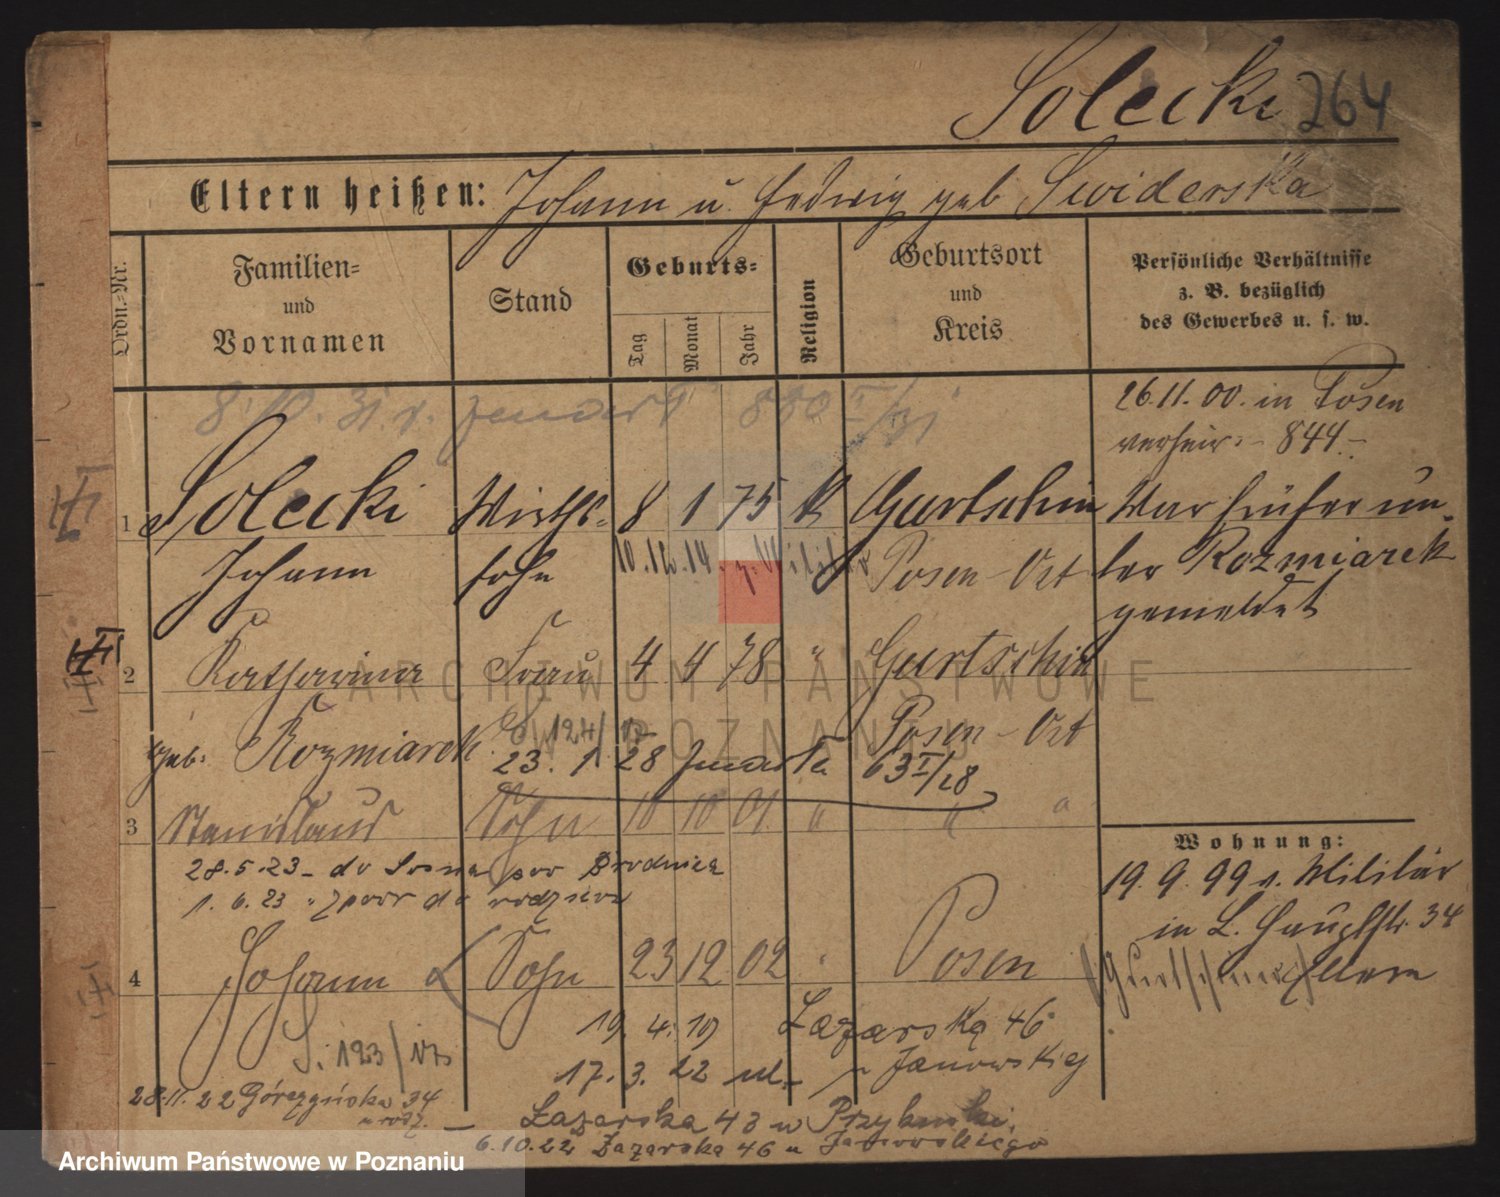 Solecki 264
Eltern heißen: Johann u. Hedwig geb Swiderska
Ordn.-Nr.
Familien-
und
Vornamen
Stand
Geburts-
Tag
Monat
Jahr
Religion
Geburtsort
und
Kreis
Persönliche Verhältnisse
z. B. bezüglich
des Gewerbes u. s. w.
26.11.00. in Posen
verheir. - 844.-
1 Solecki Wirths- 8 1 75 K Gurtschin War früher un-
Johann sohn 10.12.14. z. Militär Posen-Ost ter Rozmiarek
gemeldet
2 Katharina Frau 4 4 78 " Gurtschin
geb. Rozmiarek Posen-Ost
23. 1 28 63 I/28
3 Stanislaus Sohn 10 10 01 " " "
28.5.23 - do Sosna pow Brodnica
1.6.23
Wohnung:
19.9.99 v. Militär
in L. Hauptstr. 34
Eltern
4 Johann Sohn 23 12 02 " Posen
S. 123/17
19. 4. 19 Łazarska 46
17. 3. 22 ul. Janowskiej
28.11.22 Górczyńska 34
u rodz.
- Łazarska 43 u
6.10.22 Łazarska 46 u Janowskiego
ARCHIWUM PAŃSTWOWE
W POZNANIU
Archiwum Państwowe w Poznaniu